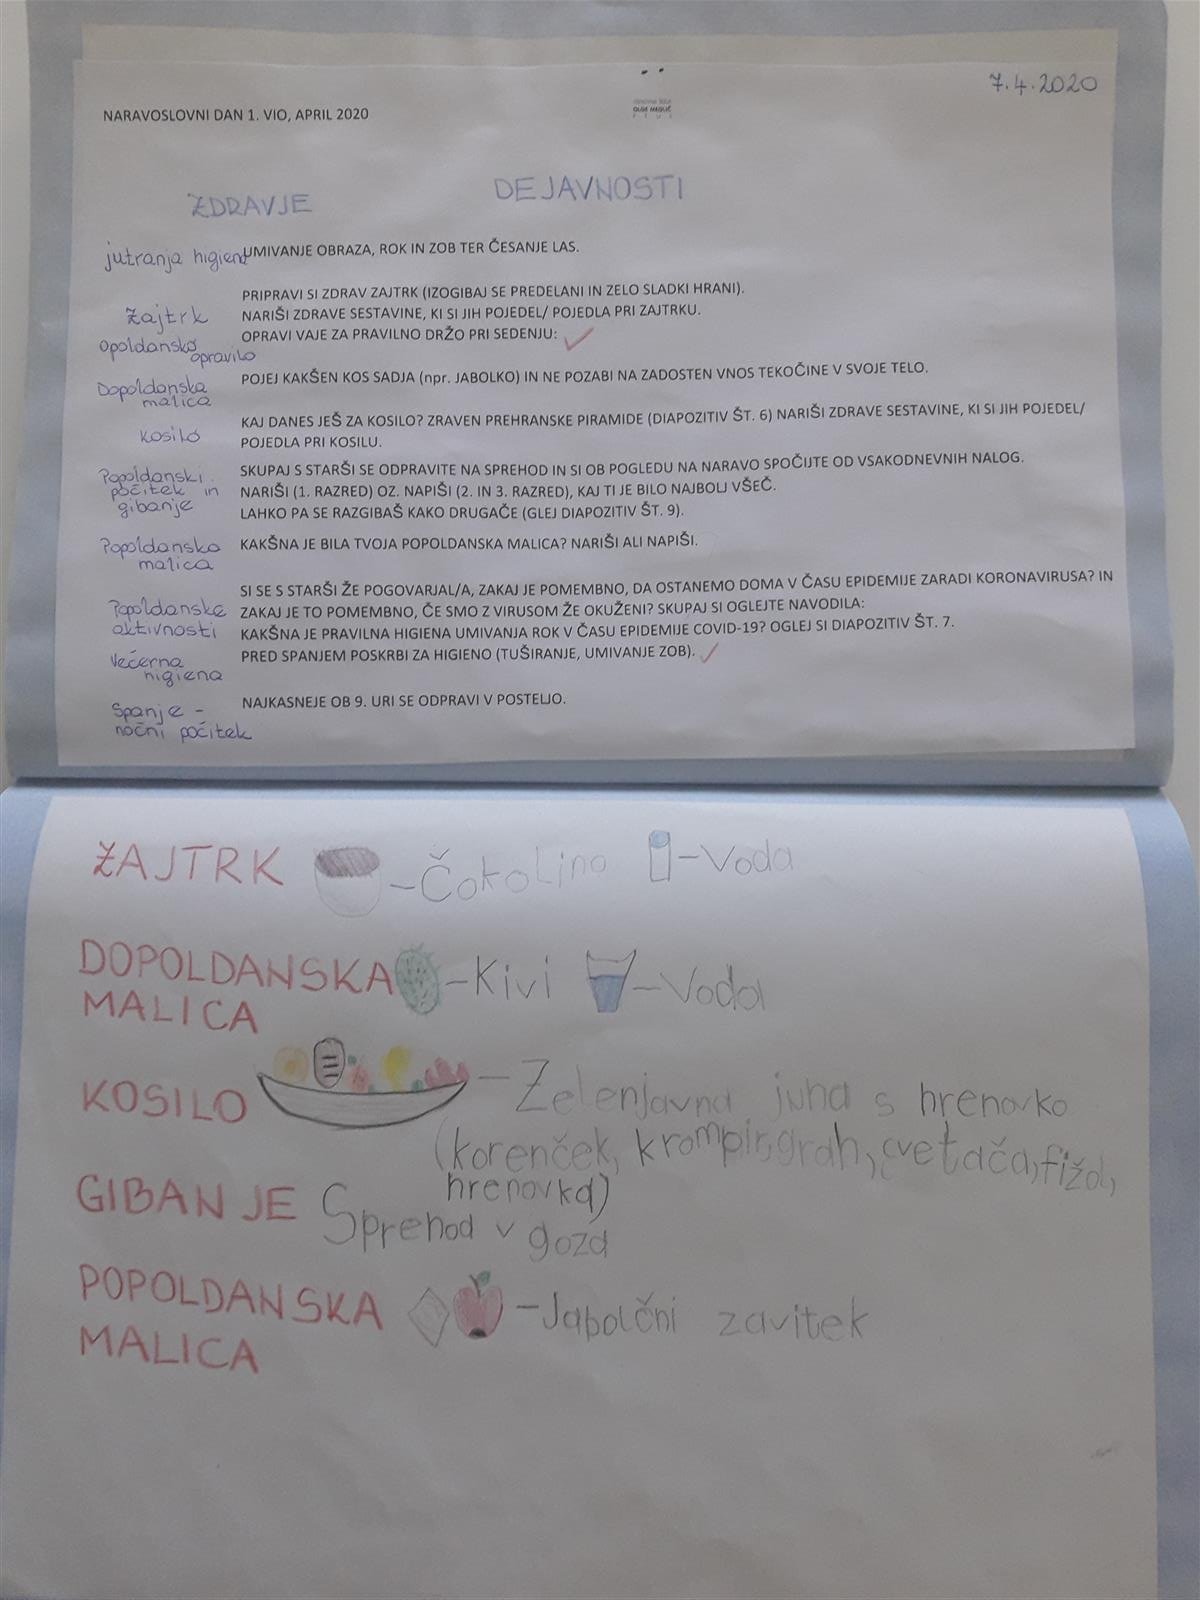 7.4.2020
NARAVOSLOVNI DAN 1. VIO, APRIL 2020
OLGE MEGLIČ
ZDRAVJE
DEJAVNOSTI
jutranja higiena
UMIVANJE OBRAZA, ROK IN ZOB TER ČESANJE LAS.
PRIPRAVI SI ZDRAV ZAJTRK (IZOGIBAJ SE PREDELANI IN ZELO SLADKI HRANI).
Zajtrk
NARIŠI ZDRAVE SESTAVINE, KI SI JIH POJEDEL/ POJEDLA PRI ZAJTRKU.
opoldansko
opravilo
OPRAVI VAJE ZA PRAVILNO DRŽO PRI SEDENJU:
Dopoldanska
malica
POJEJ KAKŠEN KOS SADJA (npr. JABOLKO) IN NE POZABI NA ZADOSTEN VNOS TEKOČINE V SVOJE TELO.
Kosilo
KAJ DANES JEŠ ZA KOSILO? ZRAVEN PREHRANSKE PIRAMIDE (DIAPOZITIV ŠT. 6) NARIŠI ZDRAVE SESTAVINE, KI SI JIH POJEDEL/
POJEDLA PRI KOSILU.
Popoldanski
počitek in
gibanje
SKUPAJ S STARŠI SE ODPRAVITE NA SPREHOD IN SI OB POGLEDU NA NARAVO SPOČIJTE OD VSAKODNEVNIH NALOG.
NARIŠI (1. RAZRED) OZ. NAPIŠI (2. IN 3. RAZRED), KAJ TI JE BILO NAJBOLJ VŠEČ.
LAHKO PA SE RAZGIBAŠ KAKO DRUGAČE (GLEJ DIAPOZITIV ŠT. 9).
Popoldanska
malica
KAKŠNA JE BILA TVOJA POPOLDANSKA MALICA? NARIŠI ALI NAPIŠI.
Popoldanske
aktivnosti
SI SE S STARŠI ŽE POGOVARJAL/A, ZAKAJ JE POMEMBNO, DA OSTANEMO DOMA V ČASU EPIDEMIJE ZARADI KORONAVIRUSA? IN
ZAKAJ JE TO POMEMBNO, ČE SMO Z VIRUSOM ŽE OKUŽENI? SKUPAJ SI OGLEJTE NAVODILA:
KAKŠNA JE PRAVILNA HIGIENA UMIVANJA ROK V ČASU EPIDEMIJE COVID-19? OGLEJ SI DIAPOZITIV ŠT. 7.
Večerna
higiena
PRED SPANJEM POSKRBI ZA HIGIENO (TUŠIRANJE, UMIVANJE ZOB).
Spanje -
nočni počitek
NAJKASNEJE OB 9. URI SE ODPRAVI V POSTELJO.
ZAJTRK - Čokolino - Voda
DOPOLDANSKA - Kivi - Voda
MALICA
KOSILO - Zelenjavna juha s hrenovko
(korenček, krompir, grah, cvetača, fižol,
hrenovka)
GIBANJE Sprehod v gozd
POPOLDANSKA - Jabolčni zavitek
MALICA